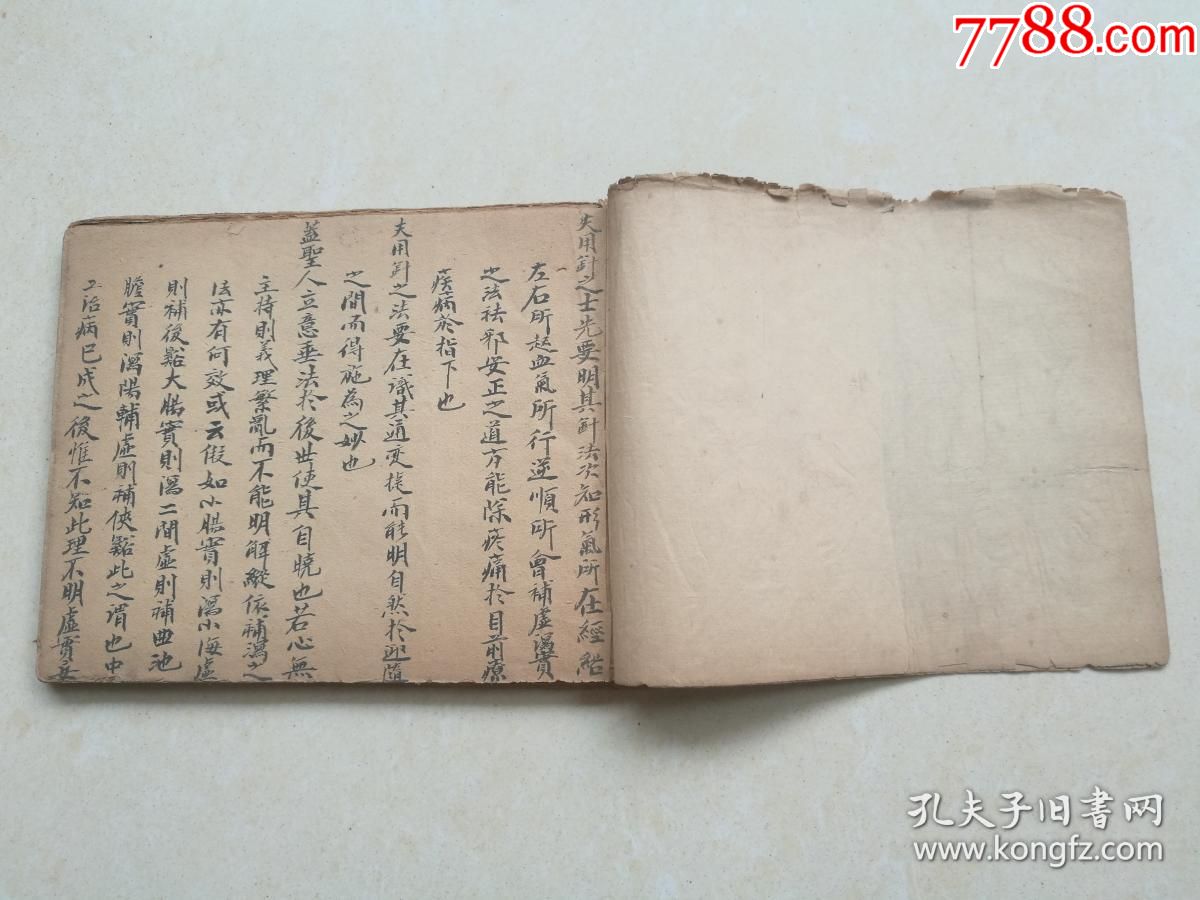 7788.com
夫用針之士先要明其針法次知形氣所在經絡
左右所起血氣所行逆順所會補虛瀉實
之法祛邪安正之道方能除疼痛於目前療
疾病於指下也
夫用針之法要在識其通变捷而能明自然於迎隨
之間而得施為之妙也
蓋聖人立意垂法於後世使其自曉也若心無
主持則義理繁亂而不能明解縱依補瀉之
法亦有何效或云假如小腸實則瀉小海虛
則補後谿大腸實則瀉二間虛則補曲池
膽實則瀉陽輔虛則補俠谿此之謂也中
工治病已成之後惟不知此理不明虛實妄
孔夫子旧書网
www.kongfz.com